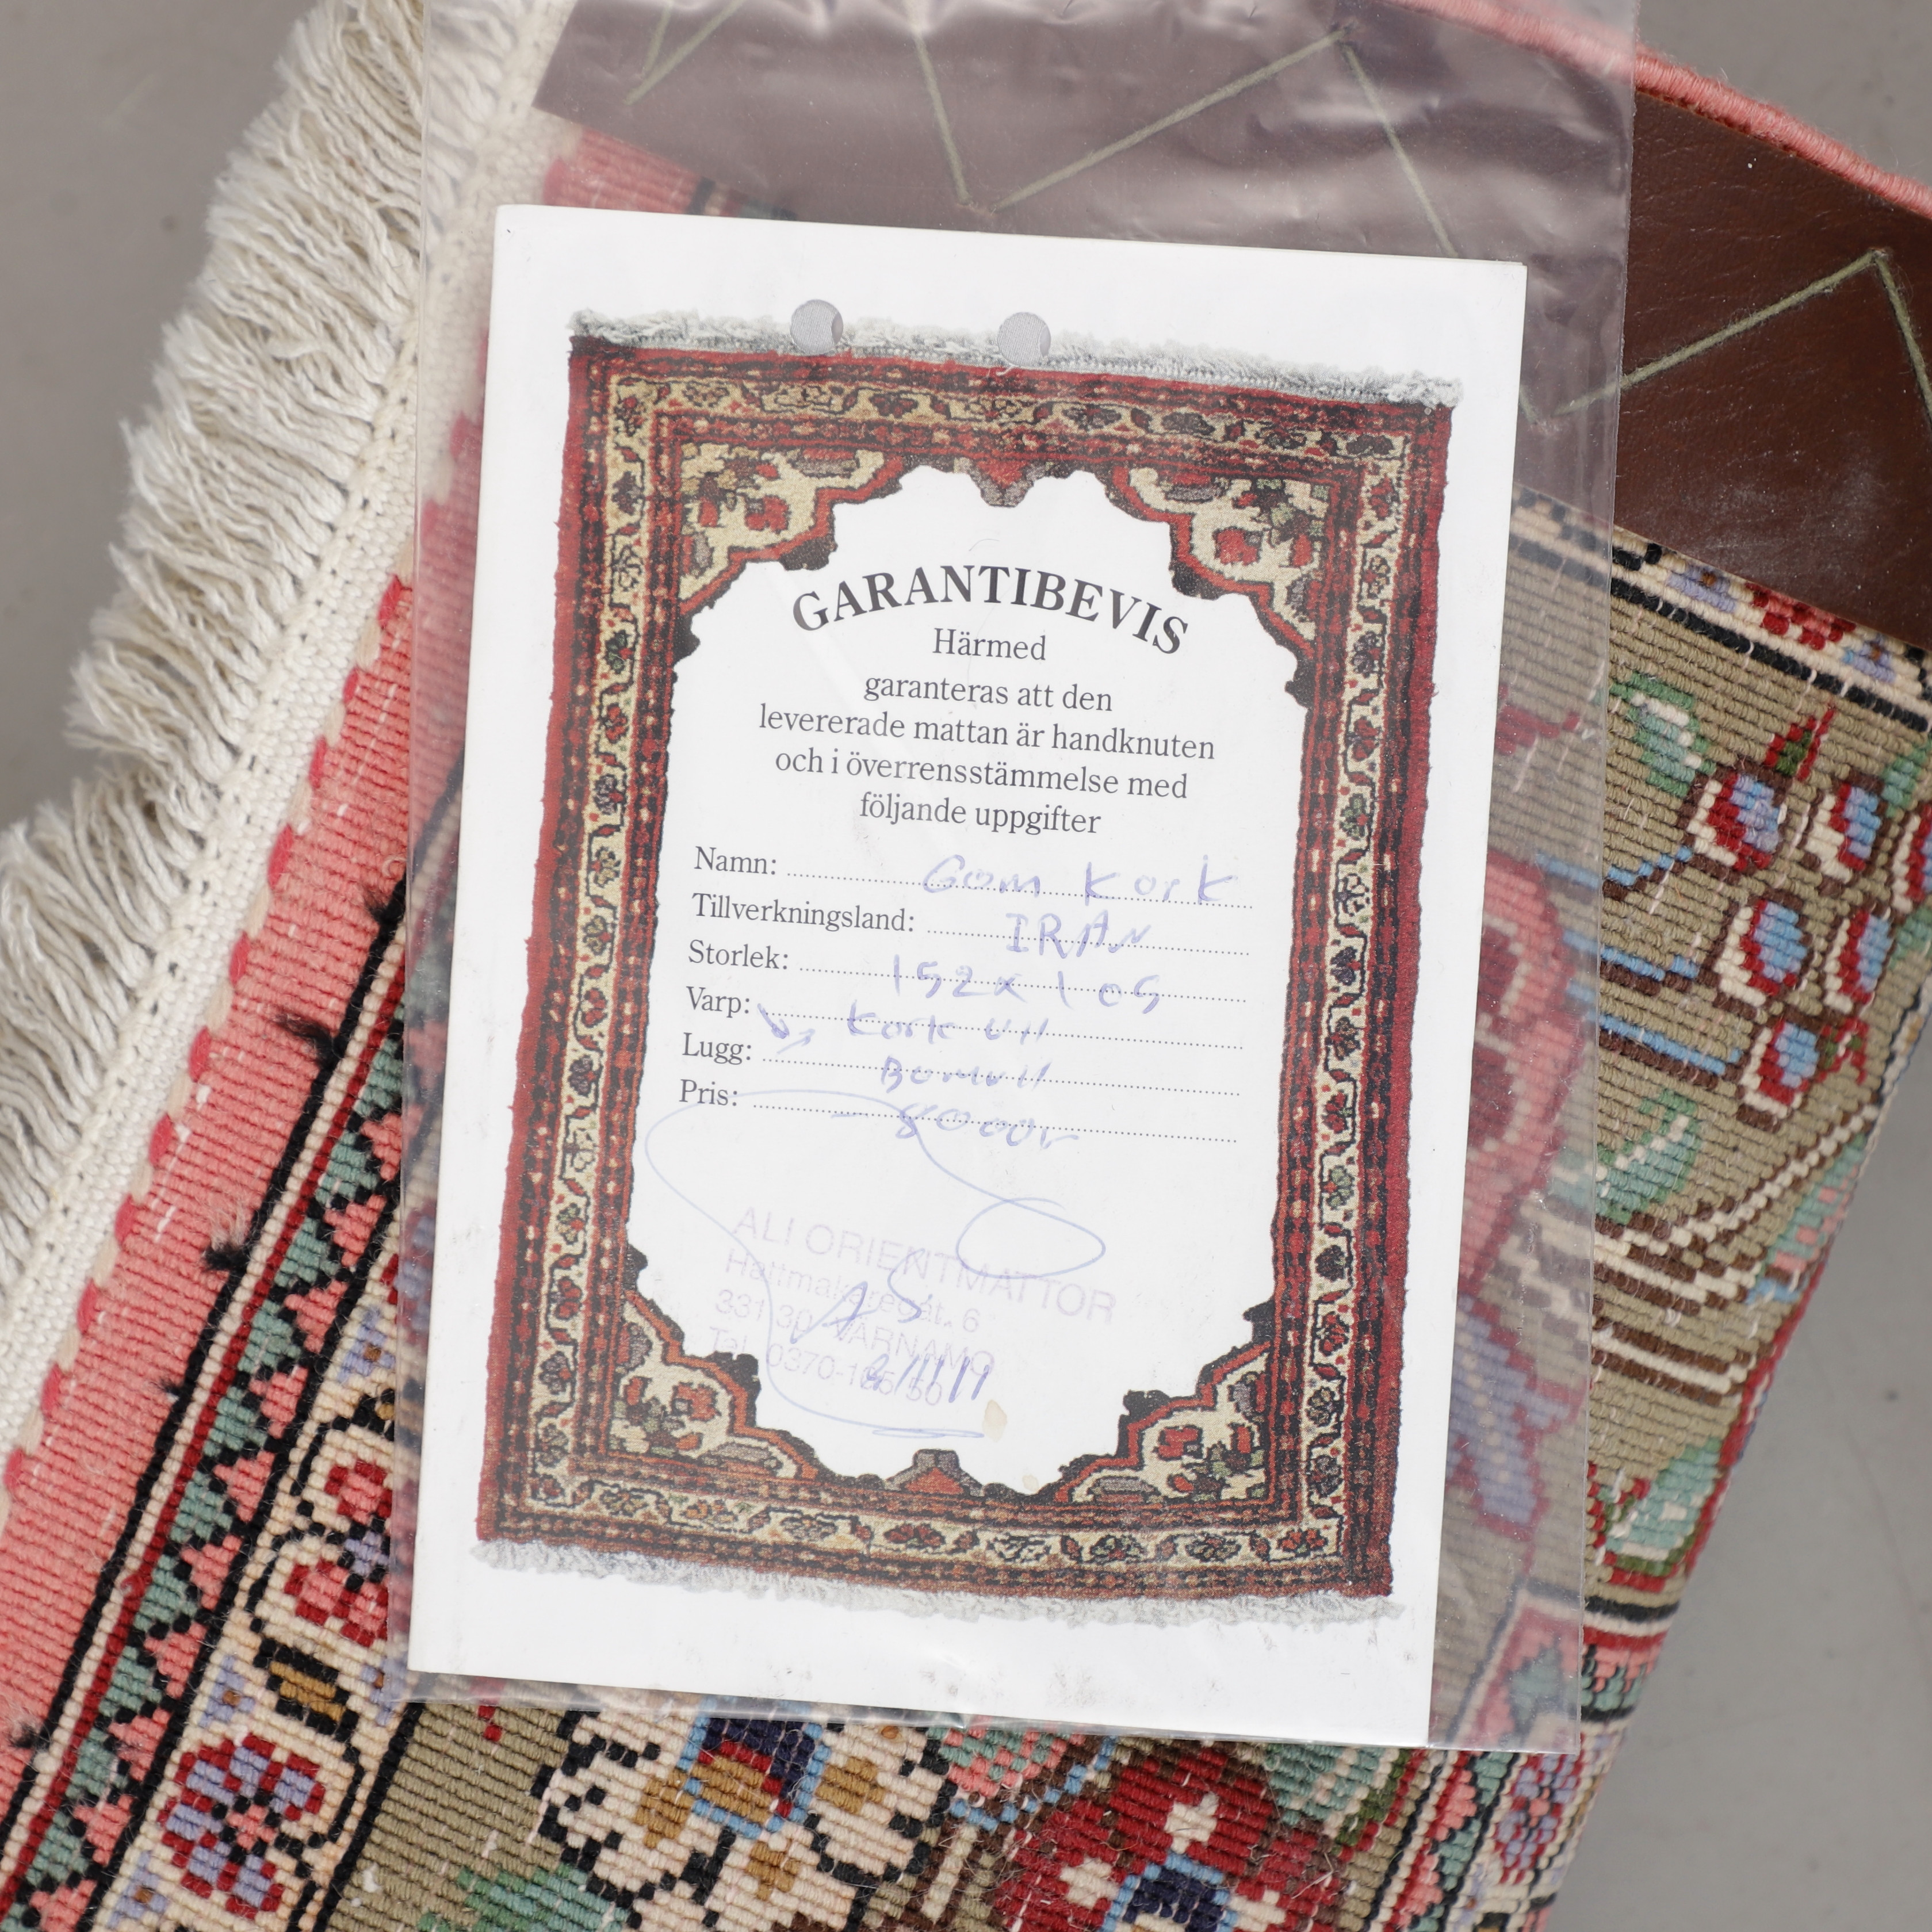 GARANTIBEVIS
Härmed
garanteras att den
levererade mattan är handknuten
och i överrensstämmelse med
följande uppgifter
Namn: Gom Kork
Tillverkningsland: IRAN
Storlek: 152x105
Varp: Kork Ull
Lugg: Bomull
Pris: 8000:-
ALI ORIENTMATTOR
Hattmakaregat. 6
331 30 VÄRNAMO
Tel. 0370-